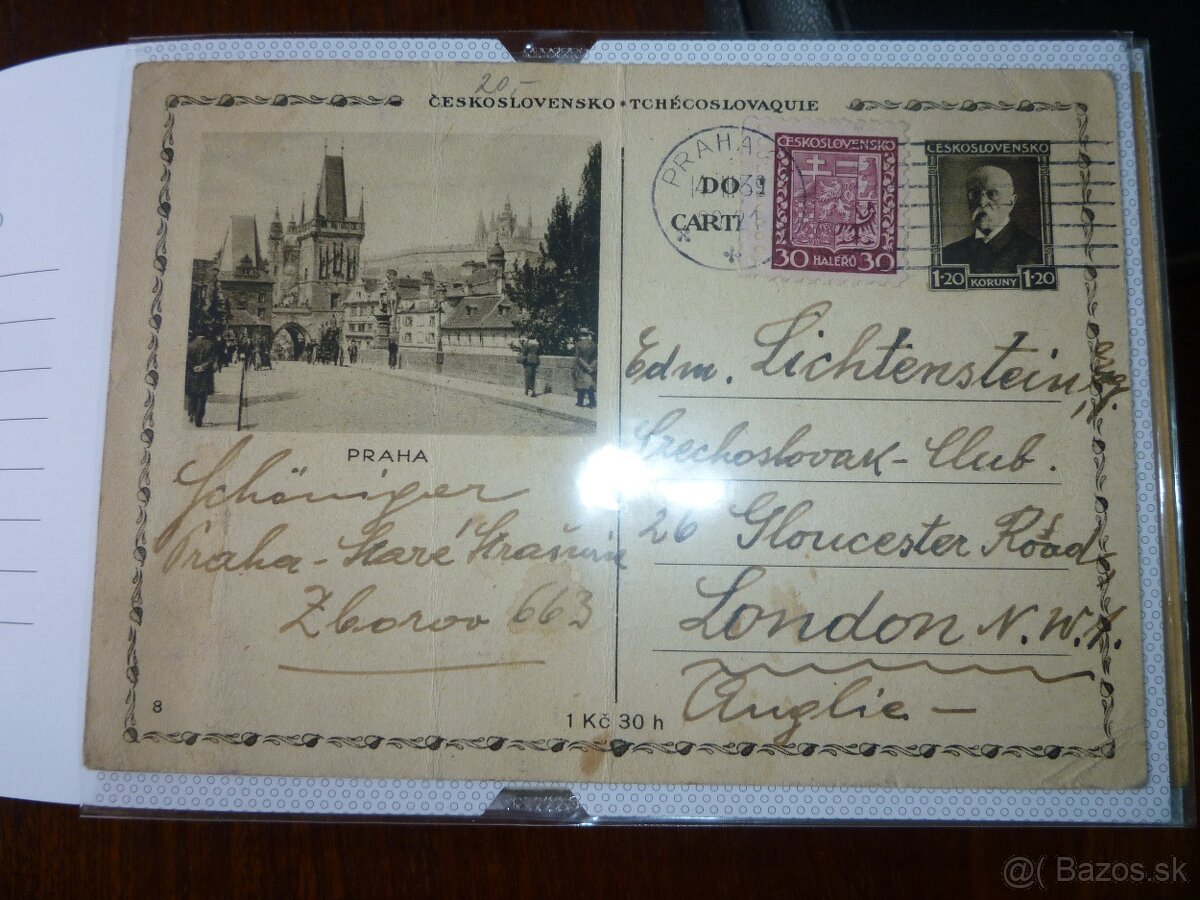 20,-
ČESKOSLOVENSKO • TCHÉCOSLOVAQUIE
PRAHA
39
DO
CART
ČESKOSLOVENSKO
30 HALÉŘŮ 30
ČESKOSLOVENSKO
1·20 KORUNY 1·20
PRAHA
Schöniger
Praha - Staré Strašnice
Zborov 663
8
1 Kč 30 h
Edm. Lichtenstein,
Czechoslovak - Club.
26 Gloucester Road
London N.W.1.
Anglie -
@( Bazos.sk